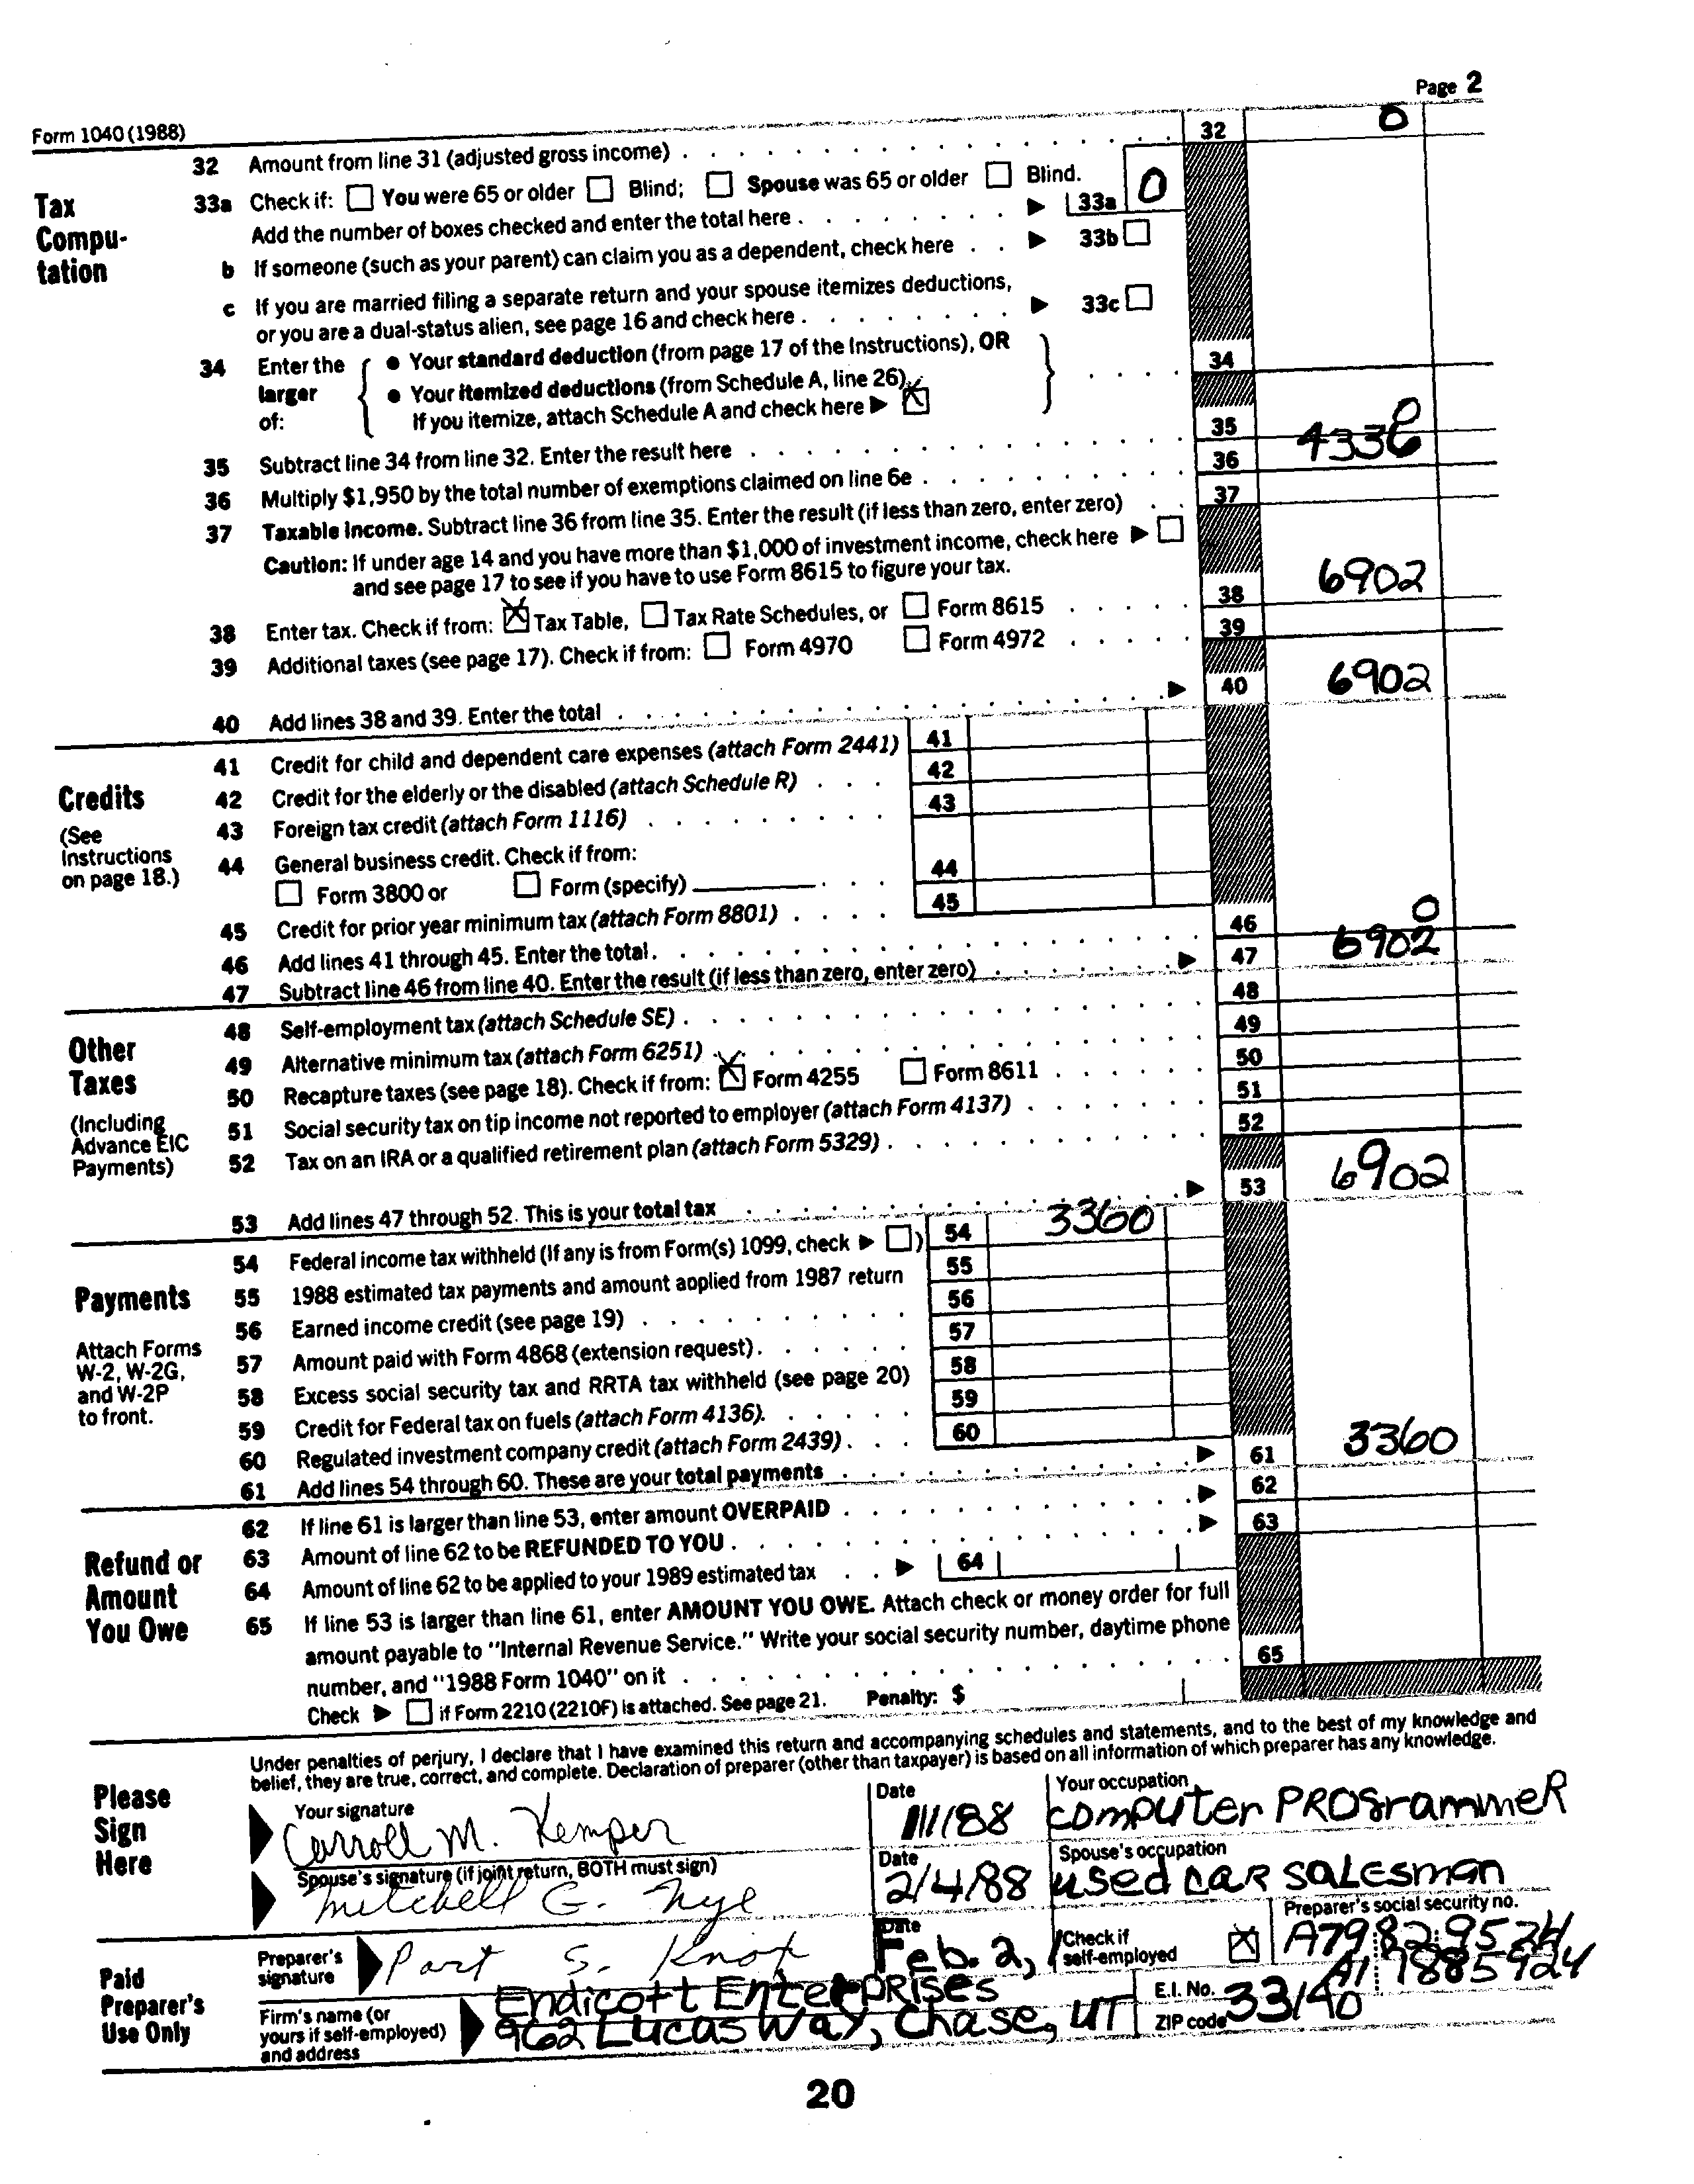 Page 2
Form 1040 (1988)
32 Amount from line 31 (adjusted gross income) 32 0
Tax Compu- tation
33a Check if: You were 65 or older Blind; Spouse was 65 or older Blind.
Add the number of boxes checked and enter the total here 33a 0
b If someone (such as your parent) can claim you as a dependent, check here 33b
c If you are married filing a separate return and your spouse itemizes deductions,
or you are a dual-status alien, see page 16 and check here 33c
34 Enter the larger of: • Your standard deduction (from page 17 of the Instructions), OR 34
• Your itemized deductions (from Schedule A, line 26).
If you itemize, attach Schedule A and check here X
35 Subtract line 34 from line 32. Enter the result here 35 0
36 Multiply $1,950 by the total number of exemptions claimed on line 6e 36 4336
37 Taxable income. Subtract line 36 from line 35. Enter the result (if less than zero, enter zero) 37
Caution: If under age 14 and you have more than $1,000 of investment income, check here
and see page 17 to see if you have to use Form 8615 to figure your tax.
38 Enter tax. Check if from: X Tax Table, Tax Rate Schedules, or Form 8615 38 6902
39 Additional taxes (see page 17). Check if from: Form 4970 Form 4972 39
40 Add lines 38 and 39. Enter the total 40 6902
Credits
(See Instructions on page 18.)
41 Credit for child and dependent care expenses (attach Form 2441) 41
42 Credit for the elderly or the disabled (attach Schedule R) 42
43 Foreign tax credit (attach Form 1116) 43
44 General business credit. Check if from:
Form 3800 or Form (specify) 44
45 Credit for prior year minimum tax (attach Form 8801) 45
46 Add lines 41 through 45. Enter the total. 46 0
47 Subtract line 46 from line 40. Enter the result (if less than zero, enter zero) 47 6902
Other Taxes
(Including Advance EIC Payments)
48 Self-employment tax (attach Schedule SE) 48
49 Alternative minimum tax (attach Form 6251) 49
50 Recapture taxes (see page 18). Check if from: X Form 4255 Form 8611 50
51 Social security tax on tip income not reported to employer (attach Form 4137) 51
52 Tax on an IRA or a qualified retirement plan (attach Form 5329) 52
53 Add lines 47 through 52. This is your total tax 53 6902
Payments
Attach Forms W-2, W-2G, and W-2P to front.
54 Federal income tax withheld (If any is from Form(s) 1099, check ) 54 3360
55 1988 estimated tax payments and amount applied from 1987 return 55
56 Earned income credit (see page 19) 56
57 Amount paid with Form 4868 (extension request) 57
58 Excess social security tax and RRTA tax withheld (see page 20) 58
59 Credit for Federal tax on fuels (attach Form 4136). 59
60 Regulated investment company credit (attach Form 2439) 60
61 Add lines 54 through 60. These are your total payments 61 3360
Refund or Amount You Owe
62 If line 61 is larger than line 53, enter amount OVERPAID 62
63 Amount of line 62 to be REFUNDED TO YOU 63
64 Amount of line 62 to be applied to your 1989 estimated tax 64
65 If line 53 is larger than line 61, enter AMOUNT YOU OWE. Attach check or money order for full
amount payable to "Internal Revenue Service." Write your social security number, daytime phone
number, and "1988 Form 1040" on it 65
Check if Form 2210 (2210F) is attached. See page 21. Penalty: $
Please Sign Here
Under penalties of perjury, I declare that I have examined this return and accompanying schedules and statements, and to the best of my knowledge and
belief, they are true, correct, and complete. Declaration of preparer (other than taxpayer) is based on all information of which preparer has any knowledge.
Your signature Date Your occupation
Carroll M. Kemper 1/1/88 computer PROgrammeR
Spouse's signature (if joint return, BOTH must sign) Date Spouse's occupation
Mitchell G. Nye 2/4/88 used caR saLesman
Paid Preparer's Use Only
Preparer's signature Date Check if self-employed X Preparer's social security no.
Part S. Knot Feb. 2, A79 82 9524
Firm's name (or yours if self-employed) and address
Endicott EnterPRises E.I. No. A1 7885924
962 Lucas Way, Chase, UT ZIP code 33190
20